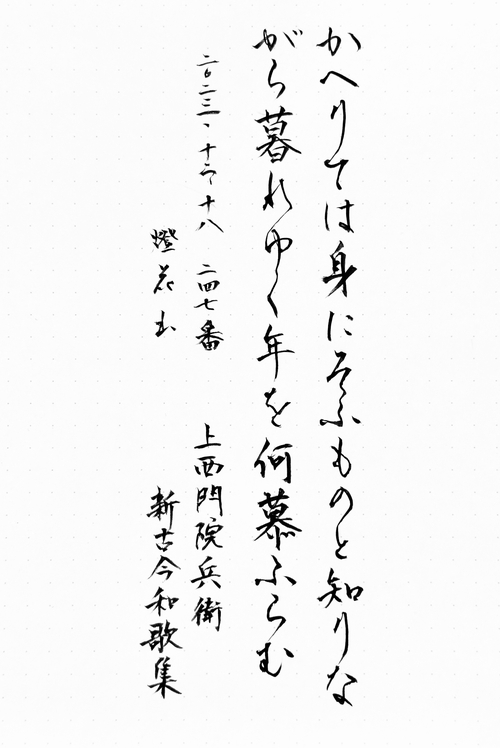 かへりては身にそふものと知りな
がら暮れゆく年を何慕ふらむ
二〇二三、十二、十八 二四七番 上西門院兵衛
燈花書 新古今和歌集